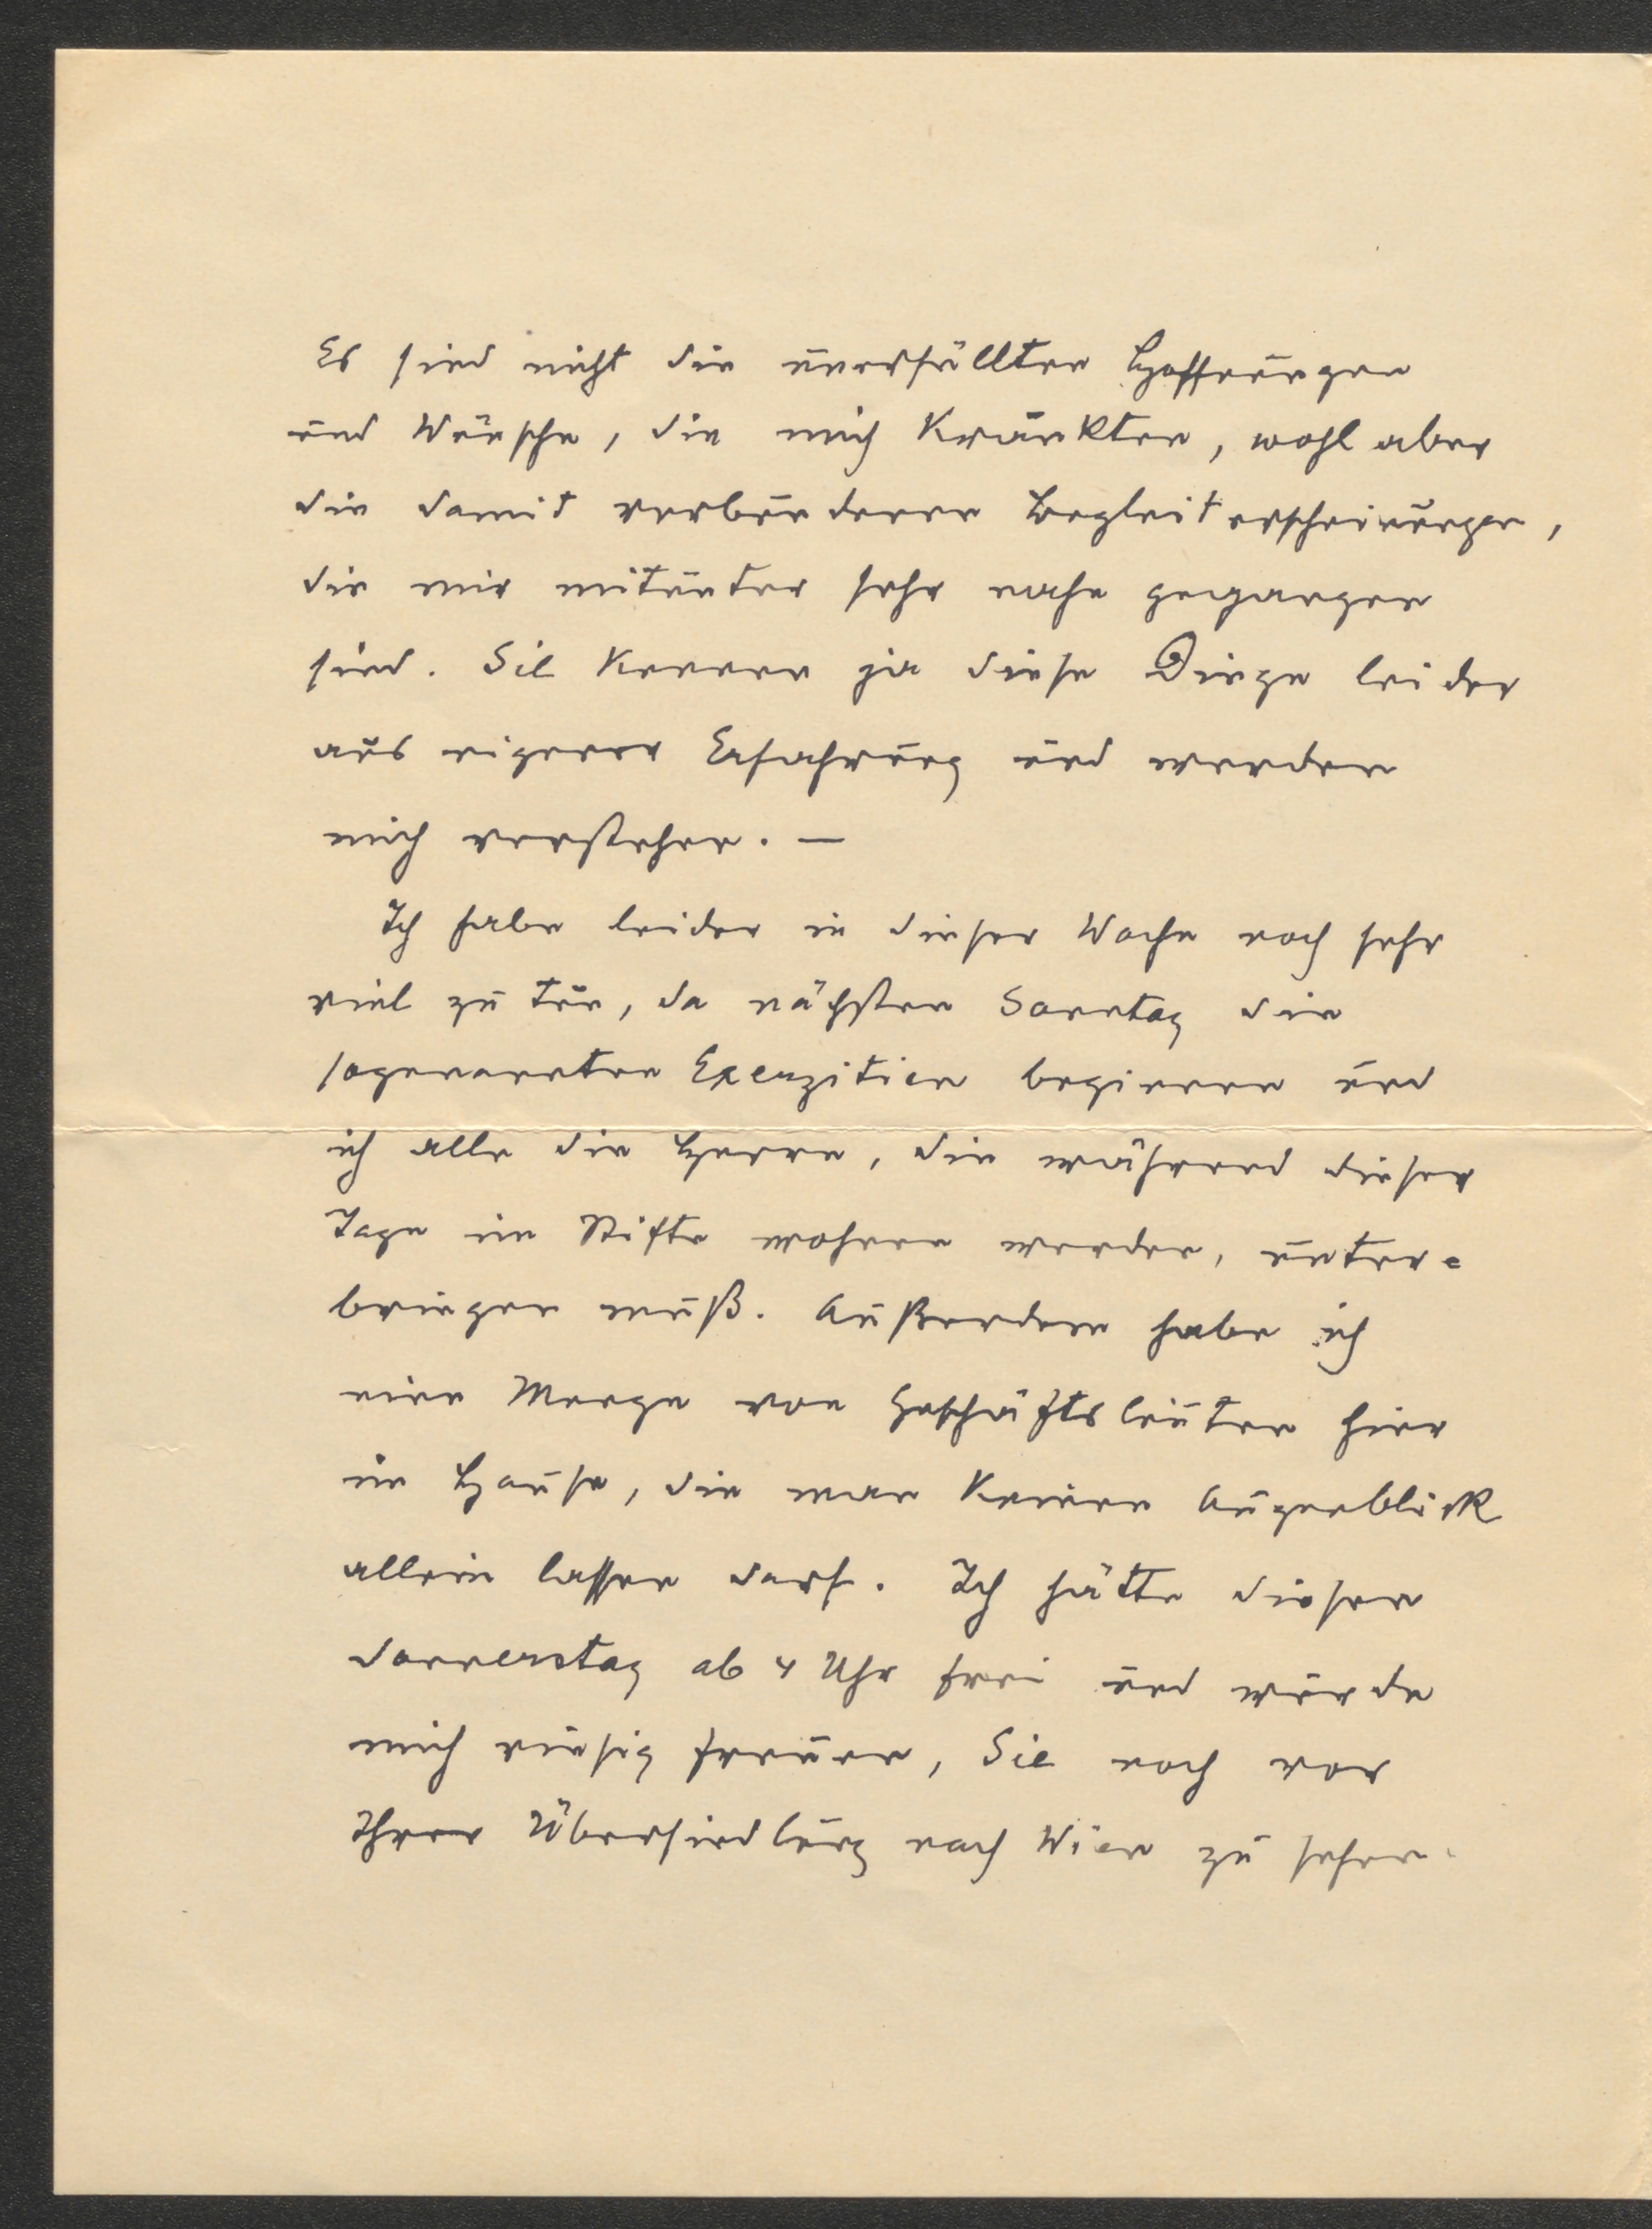 Es sind nicht die unerfüllten Hoffnungen
und Wünsche, die mich kränkten, wohl aber
die damit verbundenen Begleiterscheinungen,
die mir mitunter sehr nahe gegangen
sind. Sie kennen ja diese Dinge leider
aus eigener Erfahrung und werden
mich verstehen. —
Ich habe leider in dieser Woche noch sehr
viel zu tun, da nächsten Sonntag die
sogenannten Exerzitien beginnen und
ich alle die Herrn, die während dieser
Tage im Stifte wohnen werden, unter=
bringen muß. Außerdem habe ich
eine Menge von Geschäftsleuten hier
im Hause, die man keinen Augenblick
allein lassen darf. Ich hätte diesen
Donnerstag ab 4 Uhr frei und würde
mich riesig freuen, Sie noch vor
Ihrer Übersiedlung nach Wien zu sehen.